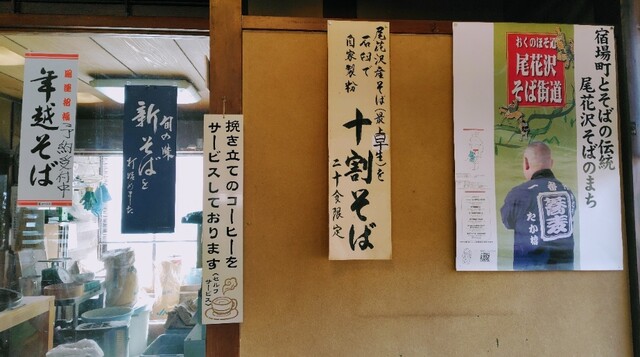 年越そば
予約受付中
旬の味
新そばを
打始めました
挽き立てのコーヒーを
サービスしております
(セルフ
サービス)
尾花沢産そば(最上早生)を
石臼で
自家製粉
十割そば
二十食限定
宿場町とそばの伝統
尾花沢そばのまち
おくのほそ道
尾花沢
そば街道
蕎麦
たか橋